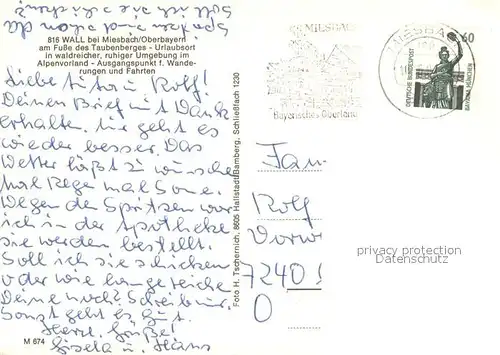 816 WALL bei Miesbach/Oberbayern
am Fuße des Taubenberges - Urlaubsort
in waldreicher, ruhiger Umgebung im
Alpenvorland - Ausgangspunkt f. Wande-
rungen und Fahrten
Liebe Rolf!
Deinen Brief mit Dank
erhalten. geht es
wieder besser. Das
Wetter läßt zu wünsche
mal Rege mal Sone.
Wegen den Spritzen war
ich in der Apotheke
sie werden bestellt.
Soll ich sie schicken
oder wie lange reiche
Deine noch? Schreib nur.
Sonst geht es gut.
Herzl. Grüße!
Gisela u. Hans
M 674
Foto H. Tschernich, 8605 Hallstadt/Bamberg, Schließfach 1230
MIESBACH
Bayerisches Oberland
MIESBACH
60
DEUTSCHE BUNDESPOST
BAVARIA MÜNCHEN
Fam
Rolf
Vorw
7240
O
privacy protection
Datenschutz